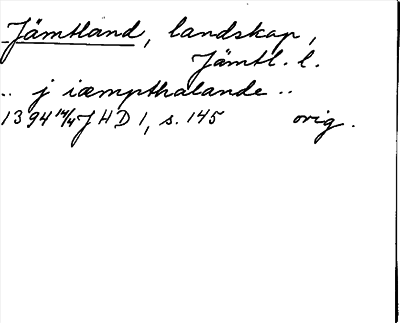 Jämtland, landskap,
Jämtl. l.
.. j iæmpthalande ..
1394 14/4 JHD 1, s. 145 orig.